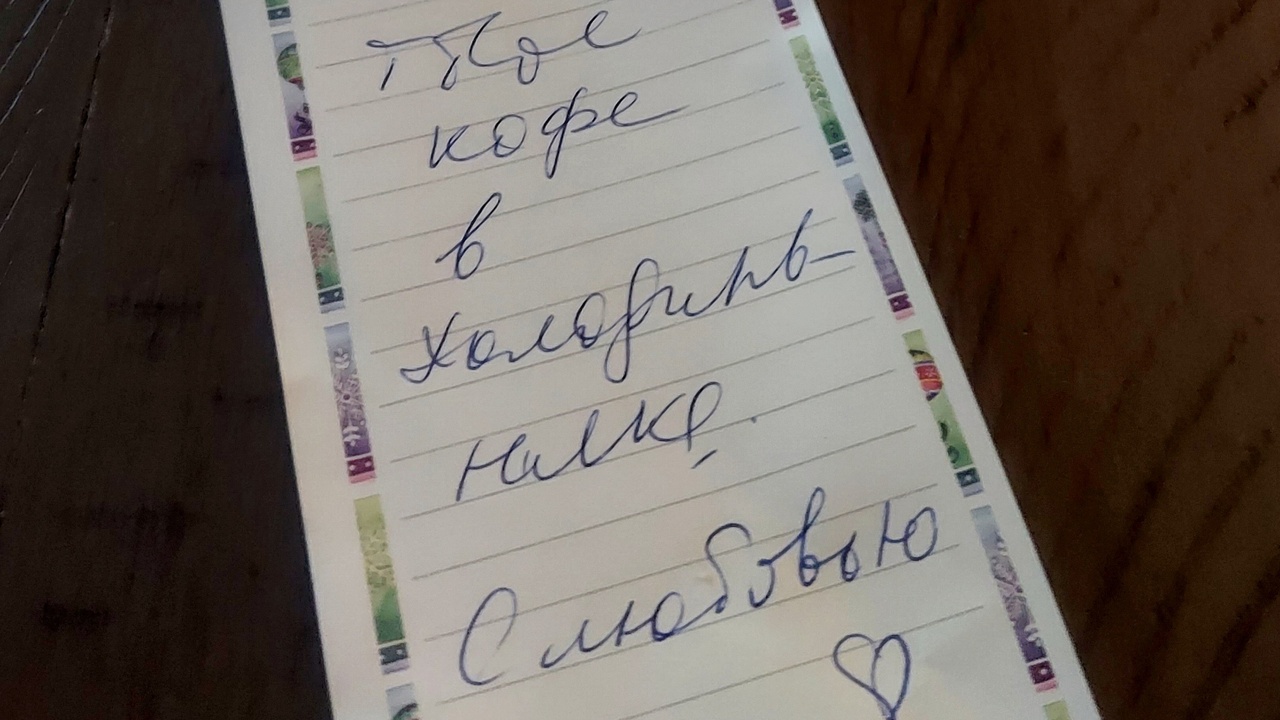 Твое
кофе
в
холодиль-
нике.
С любовью